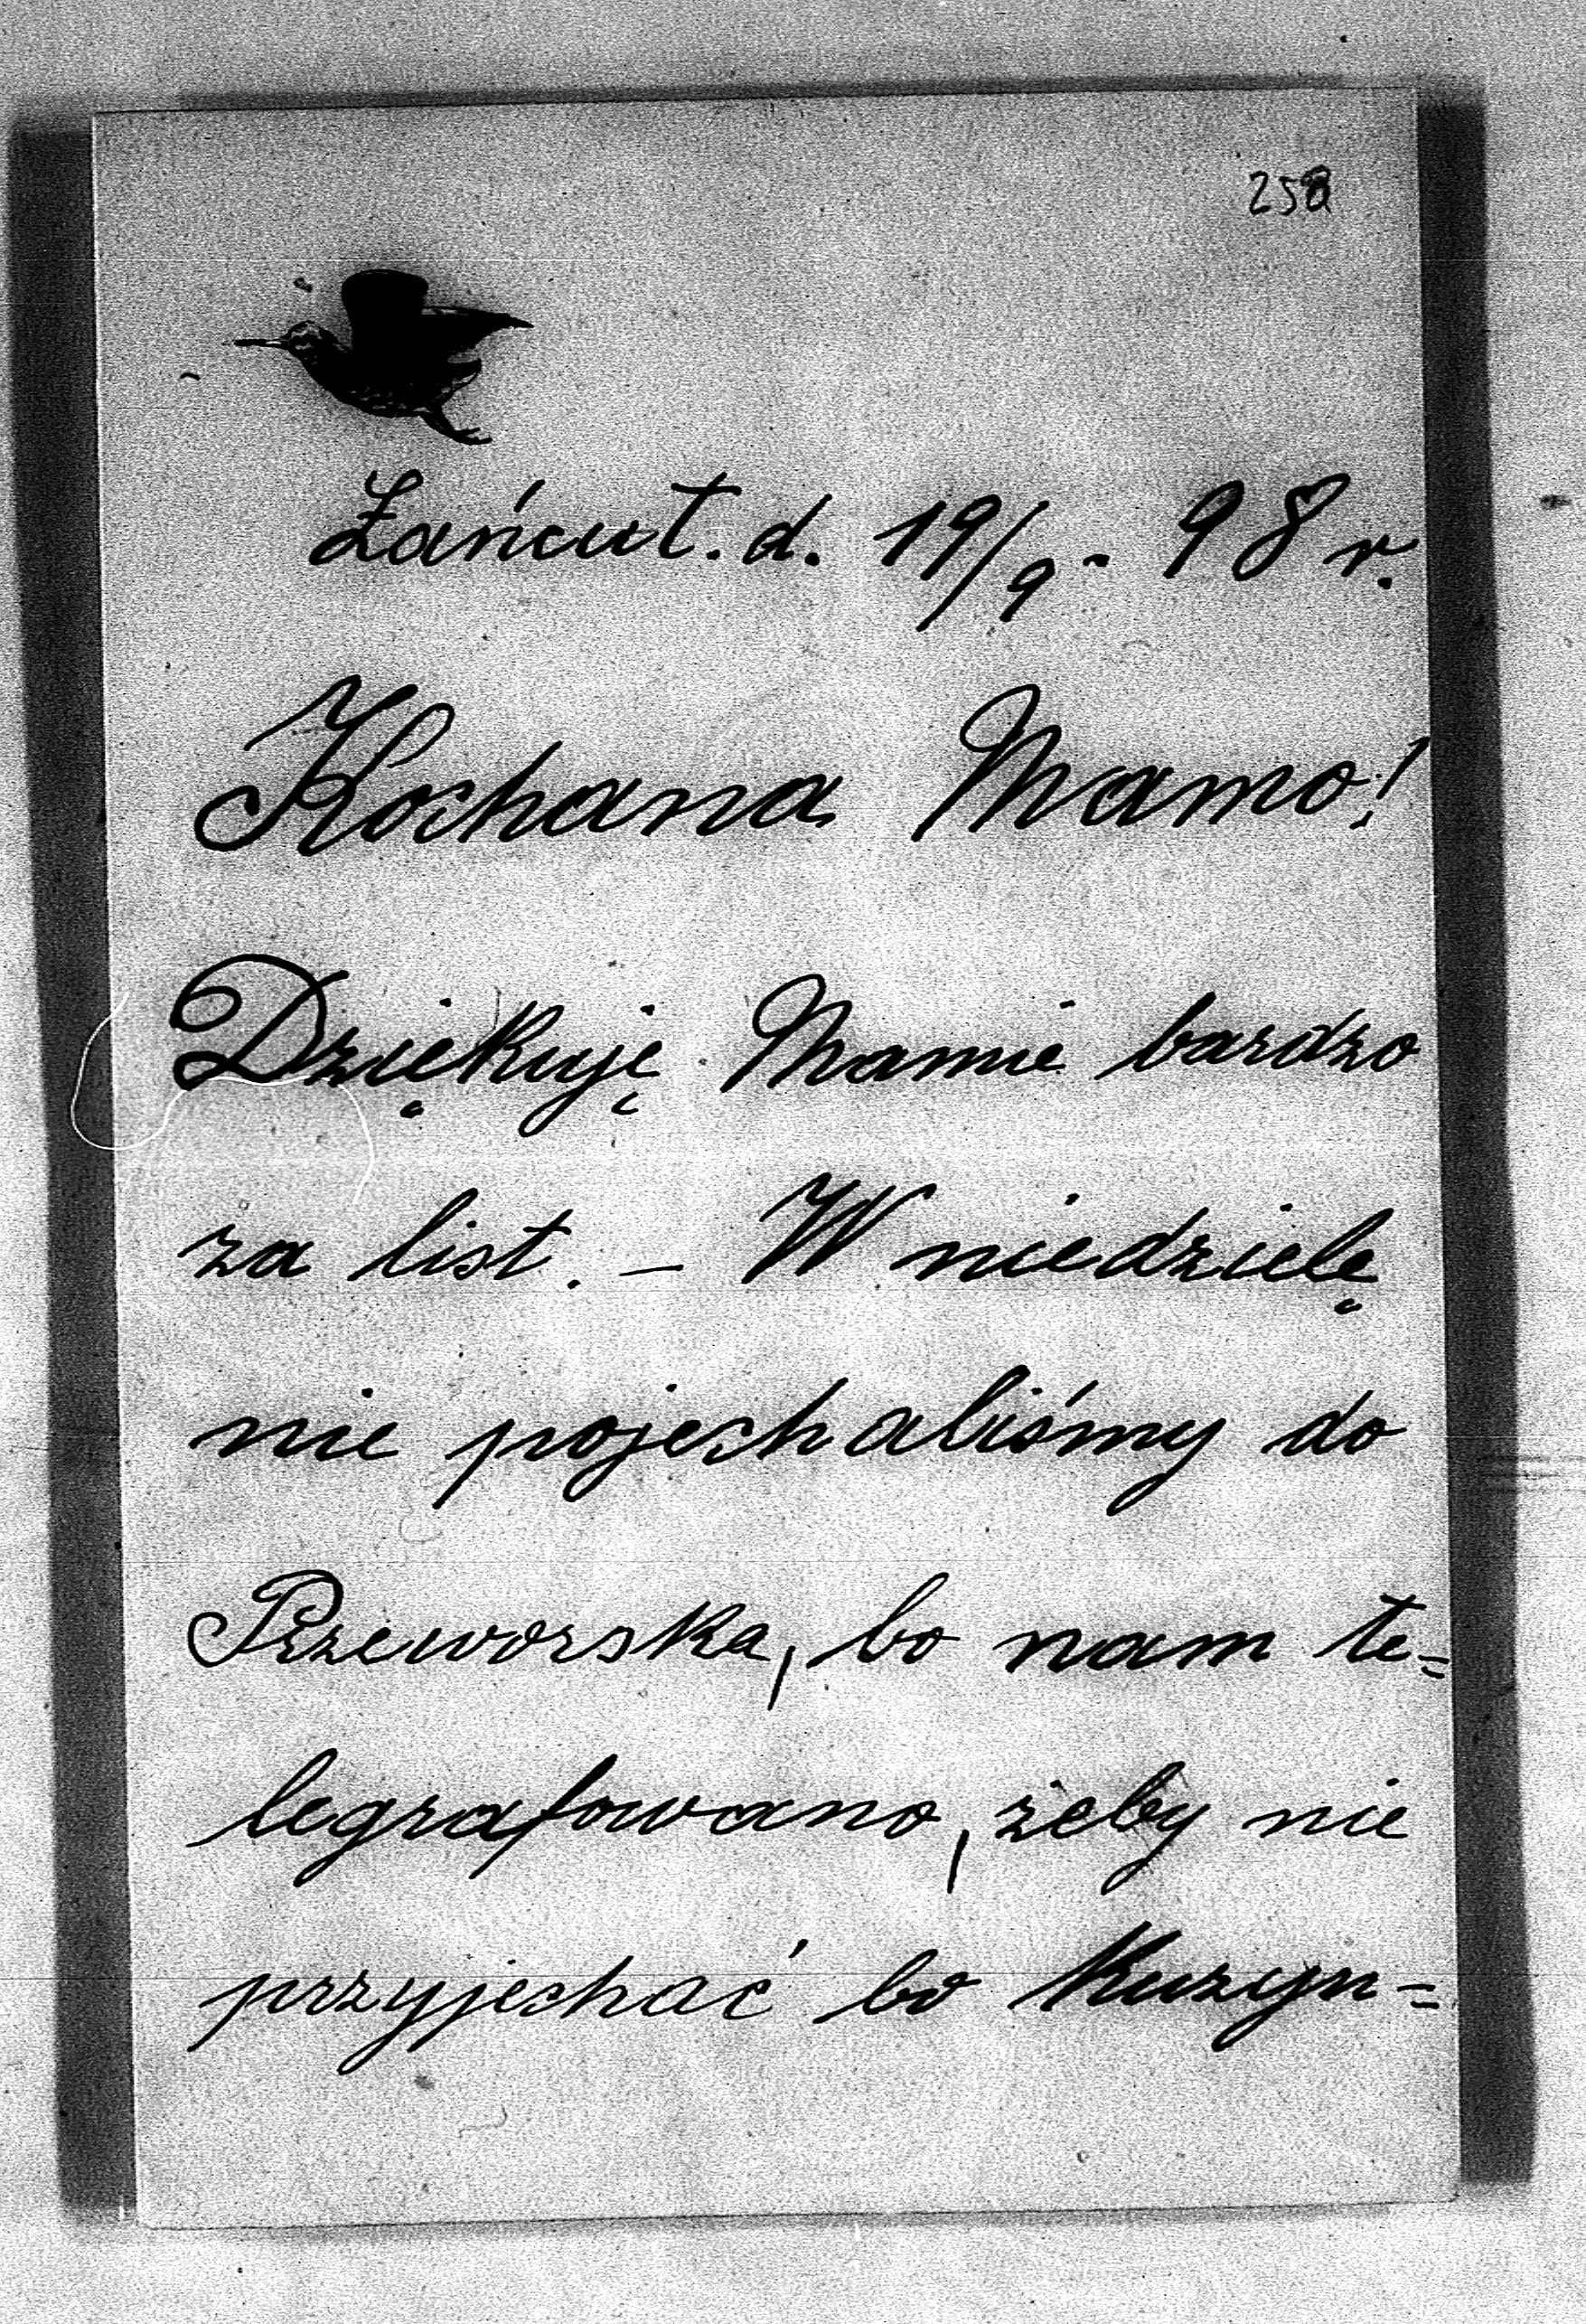 258
Łańcut. d. 19/9 - 98 r.
Kochana Mamo!
Dziękuję Mamie bardzo
za list. — W niedzielę
nie pojechaliśmy do
Przeworska, bo nam te=
legrafowano, żeby nie
przyjechać bo Kuzyn=